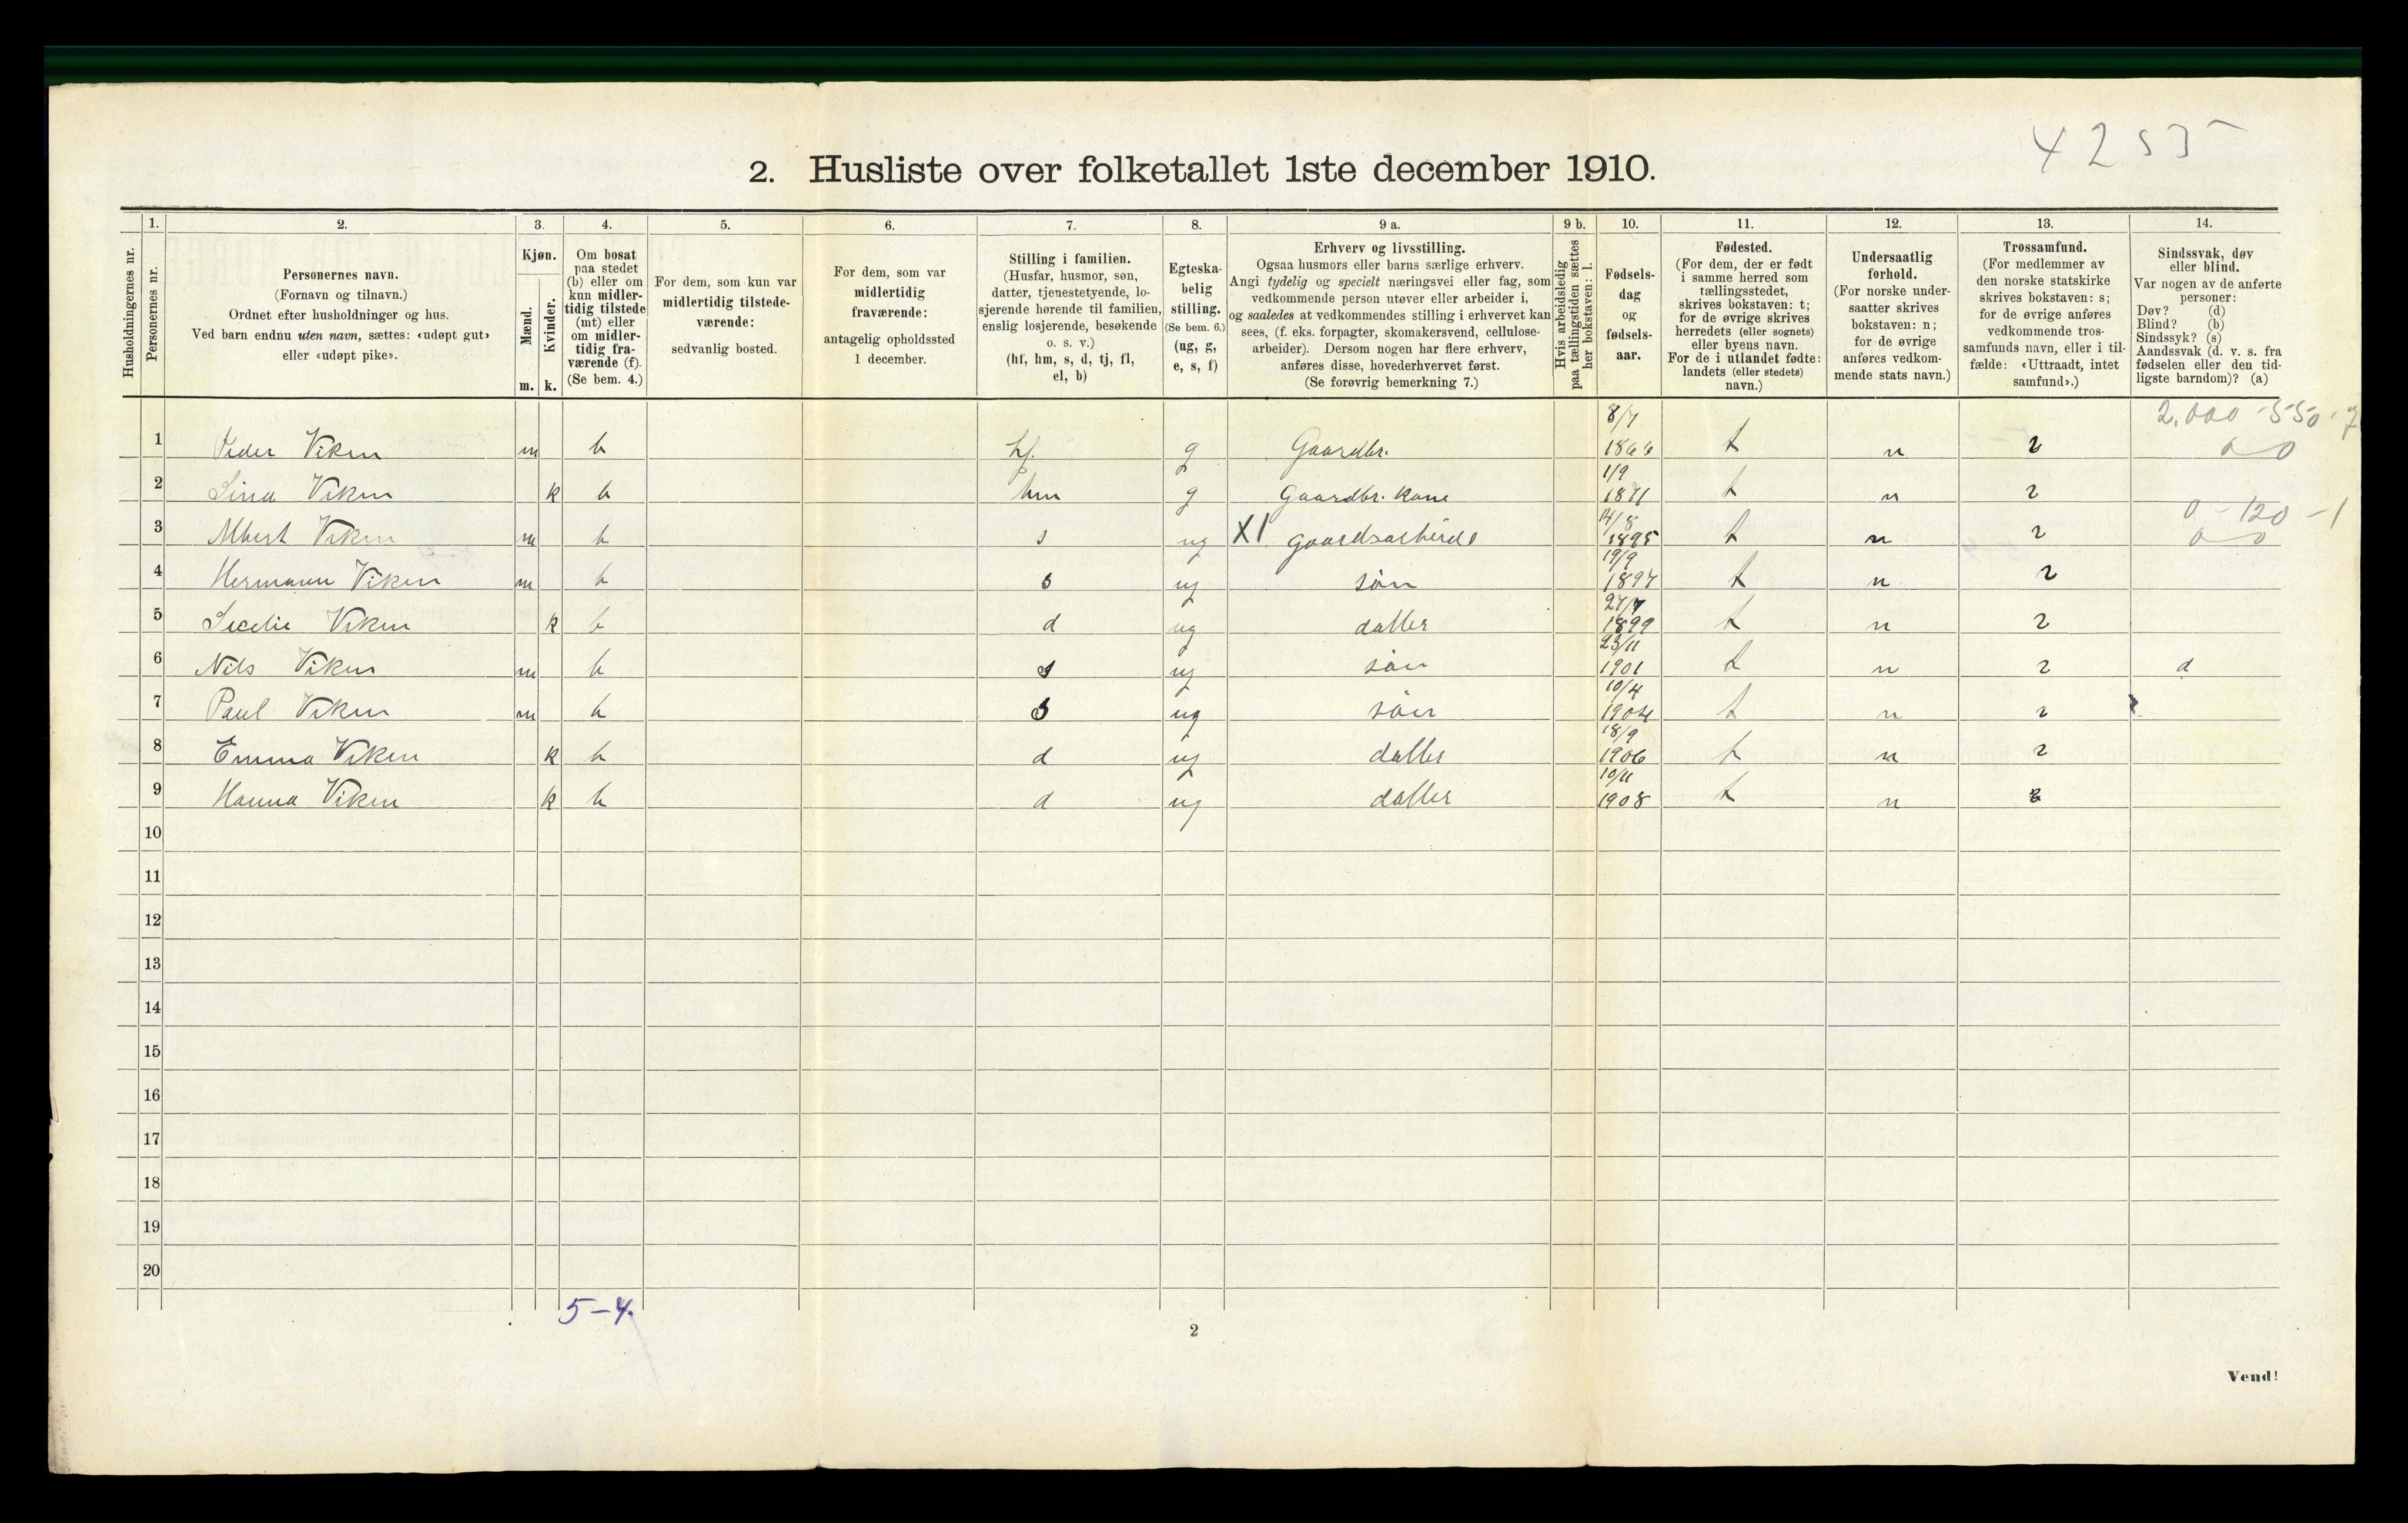 4253
2. Husliste over folketallet 1ste december 1910.
Husholdningernes nr.
1.
Personernes nr.
2.
Personernes navn.
(Fornavn og tilnavn.)
Ordnet efter husholdninger og hus.
Ved barn endnu uten navn, sættes: «udøpt gut»
eller «udøpt pike».
3.
Kjøn.
Mænd.
Kvinder.
m. k.
4.
Om bosat
paa stedet
(b) eller om
kun midler-
tidig tilstede
(mt) eller
om midler-
tidig fra-
værende (f).
(Se bem. 4.)
5.
For dem, som kun var
midlertidig tilstede-
værende:
sedvanlig bosted.
6.
For dem, som var
midlertidig
fraværende:
antagelig opholdssted
1 december.
7.
Stilling i familien.
(Husfar, husmor, søn,
datter, tjenestetyende, lo-
sjerende hørende til familien,
enslig losjerende, besøkende
o. s. v.)
(hf, hm, s, d, tj, fl,
el, b)
8.
Egteska-
belig
stilling.
(Se bem. 6.)
(ug, g,
e, s, f)
9 a.
Erhverv og livsstilling.
Ogsaa husmors eller barns særlige erhverv.
Angi tydelig og specielt næringsvei eller fag, som
vedkommende person utøver eller arbeider i,
og saaledes at vedkommendes stilling i erhvervet kan
sees, (f. eks. forpagter, skomakersvend, cellulose-
arbeider). Dersom nogen har flere erhverv,
anføres disse, hovederhvervet først.
(Se forøvrig bemerkning 7.)
9 b.
Hvis arbeidsledig
paa tællingstiden sættes
her bokstaven: l.
10.
Fødsels-
dag
og
fødsels-
aar.
11.
Fødested.
(For dem, der er født
i samme herred som
tællingsstedet,
skrives bokstaven: t;
for de øvrige skrives
herredets (eller sognets)
eller byens navn.
For de i utlandet fødte:
landets (eller stedets)
navn.)
12.
Undersaatlig
forhold.
(For norske under-
saatter skrives
bokstaven: n;
for de øvrige
anføres vedkom-
mende stats navn.)
13.
Trossamfund.
(For medlemmer av
den norske statskirke
skrives bokstaven: s;
for de øvrige anføres
vedkommende tros-
samfunds navn, eller i til-
fælde: «Uttraadt, intet
samfund».)
14.
Sindssvak, døv
eller blind.
Var nogen av de anførte
personer:
Døv? (d)
Blind? (b)
Sindssyk? (s)
Aandssvak (d. v. s. fra
fødselen eller den tid-
ligste barndom)? (a)
1 Peder Viken m b hf. g Gaardbr. 8/7 1866 t n s 2,000 - 550 - 7
2 Lina Viken k b hm g Gaardbr. kone 1/9 1871 t n s
3 Albert Viken m b s ug X1 gaardsarbeide 14/8 1895 t n s 0 - 120 - 1
4 Hermann Viken m b s ug søn 19/9 1897 t n s
5 Secelie Viken k b d ug datter 27/7 1899 t n s
6 Nils Viken m b s ug søn 23/11 1901 t n s d
7 Paul Viken m b s ug søn 10/4 1904 t n s
8 Emma Viken k b d ug datter 18/9 1906 t n s
9 Hanna Viken k b d ug datter 10/11 1908 t n s
10
11
12
13
14
15
16
17
18
19
20
5-4.
2
Vend!